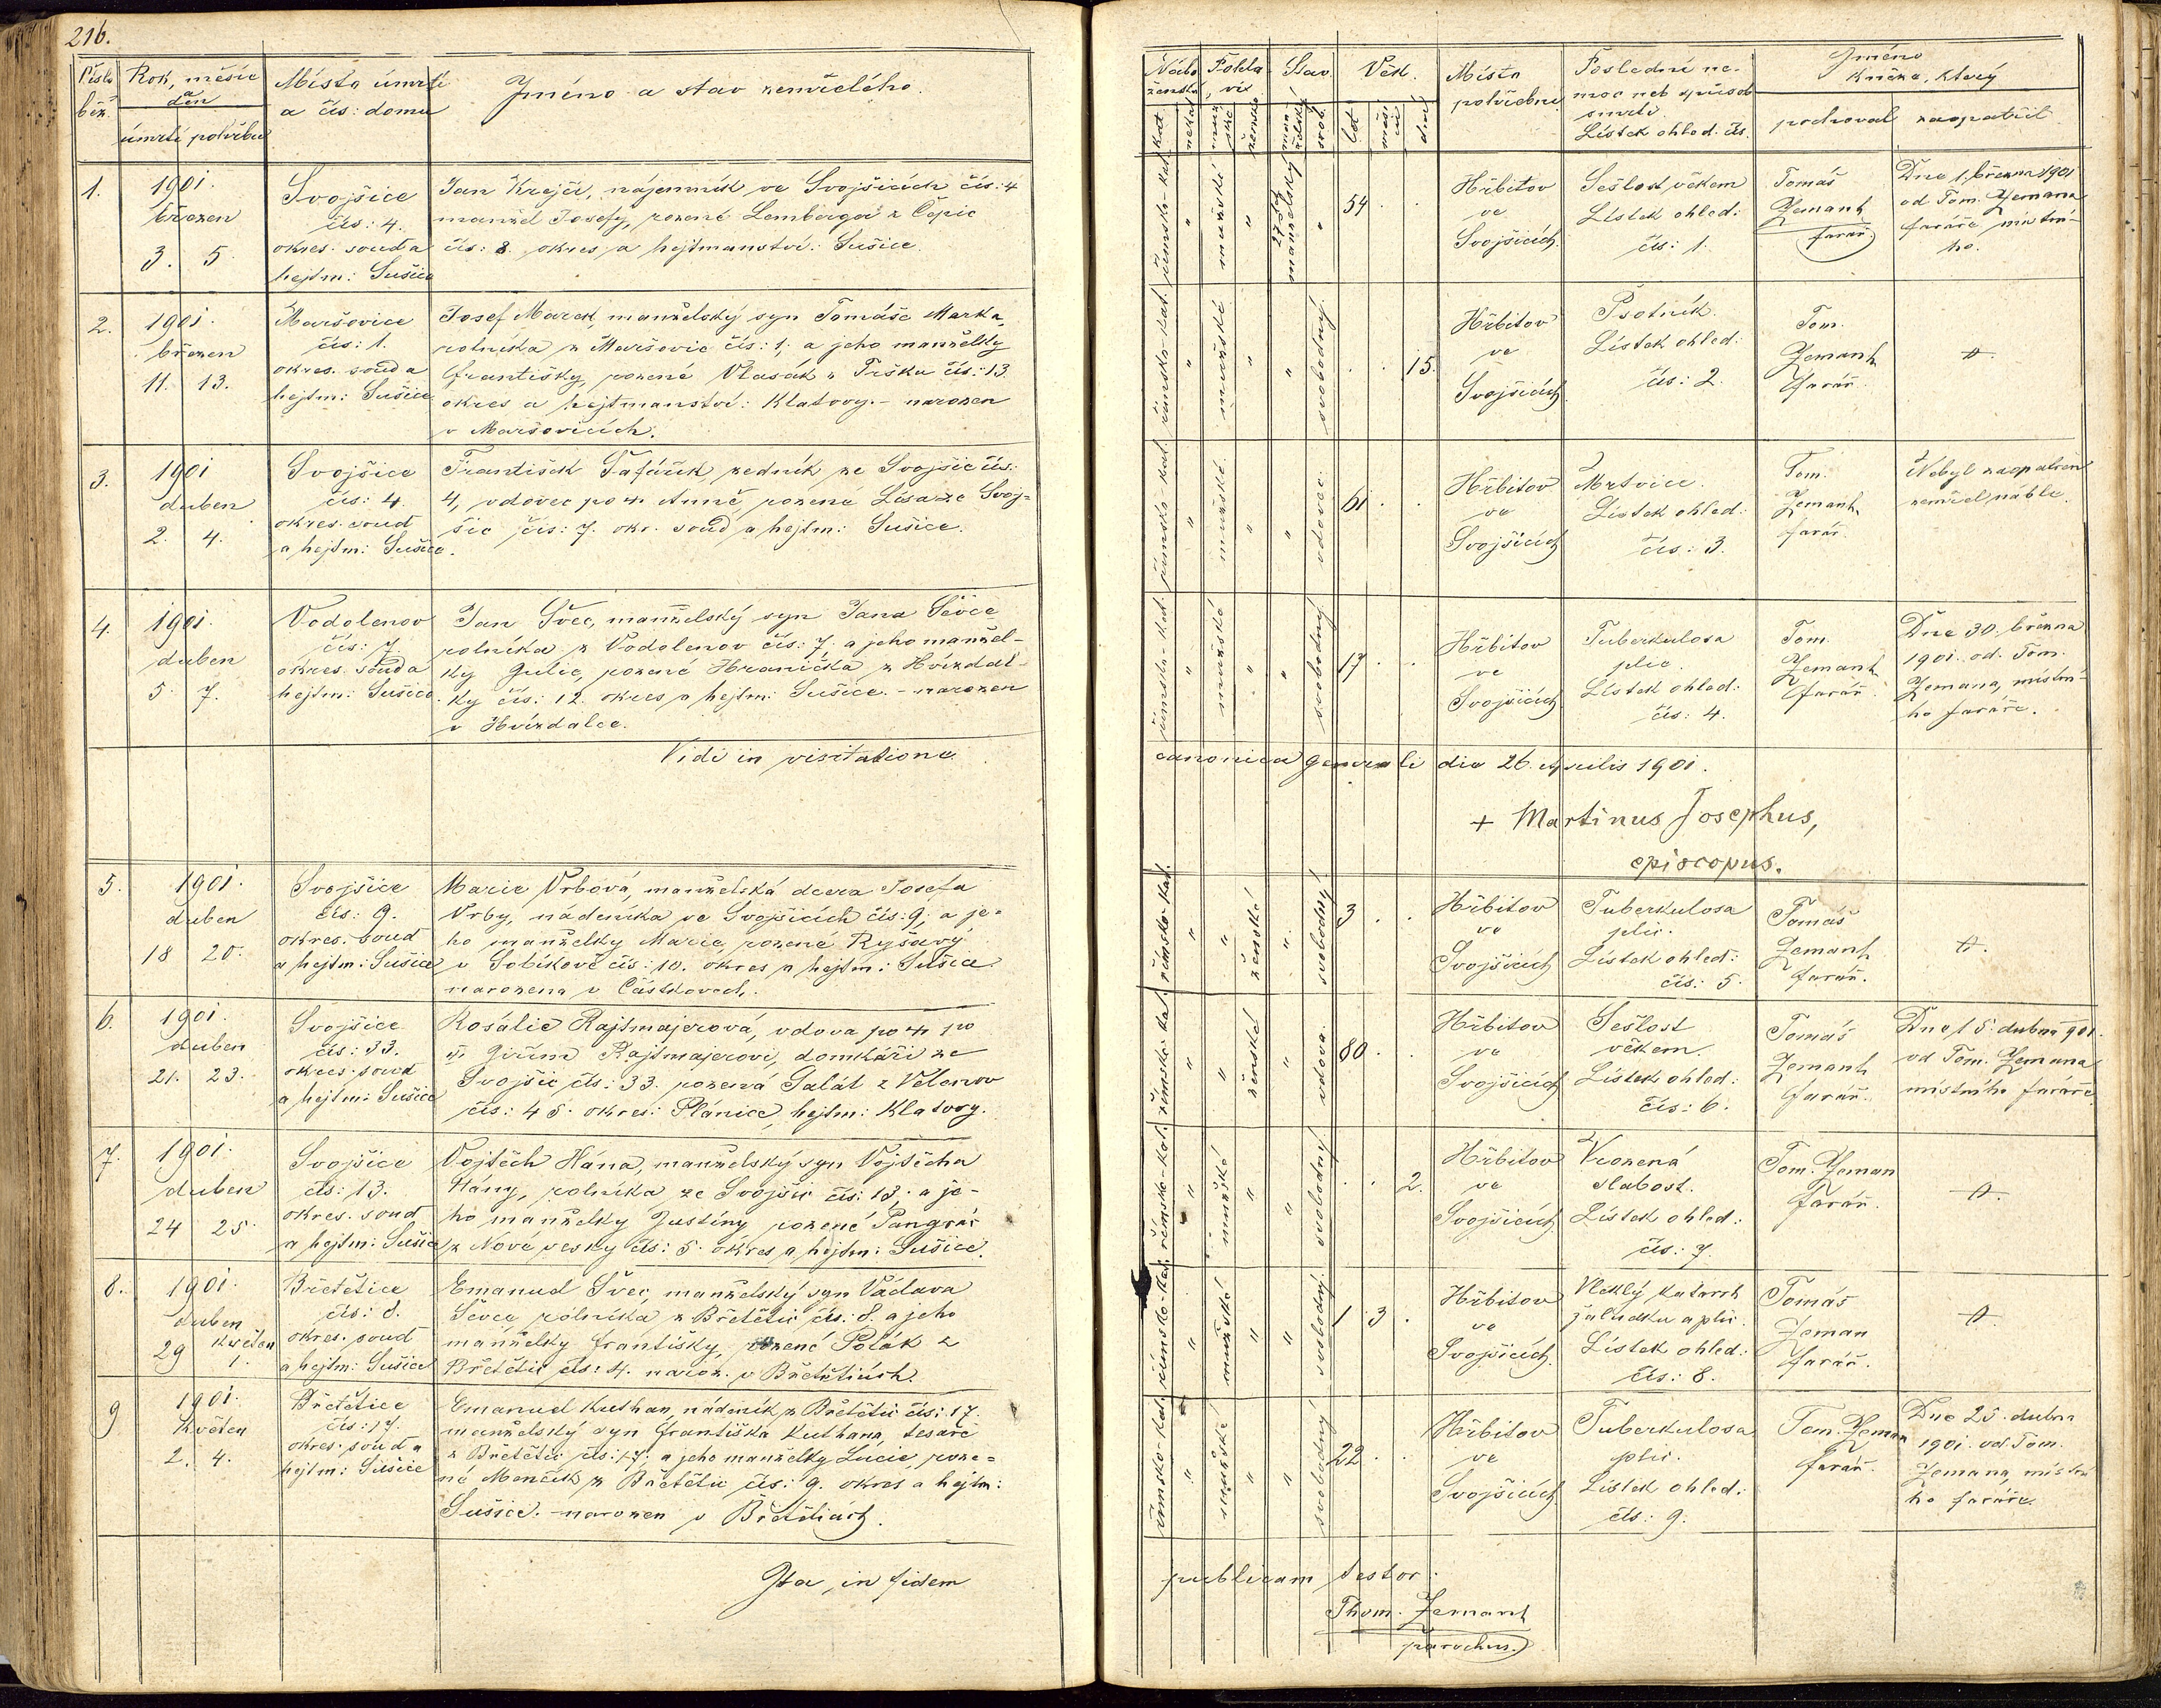 216.
Číslo běž.
Rok, měsíc a den
úmrtí pohřbu
Místo úmrtí
a čís: domu
Jméno a stav zemřelého.
1.
1901.
březen
3. 5.
Svojšice
čís: 4.
okres. soud a
hejtm: Sušice
Jan Krejčí, nájemník ve Svojšicích čís: 4
manžel Josefy, rozené Lemberger z Čepic
čís: 8. okres a hejtmanství: Sušice.
2.
1901.
březen
11. 13.
Maršovice
čís: 1.
okres. soud a
hejtm: Sušice
Josef Marek, manželský syn Tomáše Marka,
rolníka z Maršovic čís: 1; a jeho manželky
Františky, rozené Vlasák z čís: 13
okres a hejtmanství: Klatovy. – narozen
v Maršovicích.
3.
1901
duben
2. 4.
Svojšice
čís: 4.
okres. soud
a hejtm: Sušice.
František Šafařík, zedník ze Svojšic čís:
4, vdovec po † Anně, rozené Lísa ze Svoj=
šic čís: 7. okr. soud a hejtm: Sušice.
4.
1901.
duben
5. 7.
Vodolenov
čís: 7.
okres. soud a
hejtm: Sušice
Jan Švec, manželský syn Jana Ševce
rolníka z Vodolenov čís: 7, a jeho manžel-
ky Julie, rozené Hranička z Hvízdal-
ky čís: 12. okres a hejtm: Sušice. – narozen
v Hvízdalce.
Vidi in visitatione
5.
1901.
duben
18 20.
Svojšice
čís: 9.
okres. soud
a hejtm: Sušice
Marie Vrbová, manželská dcera Josefa
Vrby, nádeníka ve Svojšicích čís: 9; a je=
ho manželky Marie, rozené Ryšavý
v Sobíkově čís: 10. okres a hejtm: Sušice
narozena v Částkovech.
6.
1901.
duben
21. 23.
Svojšice
čís: 33.
okres. soud
a hejtm: Sušice
Rosálie Rajtmajerová, vdova po † po
Jiřím Rajtmajerovi, domkáři ze
Svojšic čís: 33. rozená Salát z Velenov
čís: 45. okres: Plánice, hejtm: Klatovy.
7.
1901.
duben
24 25.
Svojšice
čís: 13.
okres. soud
a hejtm: Sušice
Vojtěch Hána, manželský syn Vojtěcha
Hány, rolníka ze Svojšic čís: 13; a je-
ho manželky Justiny rozené Pangrác
z Nové vesky čís: 5. okres a hejtm: Sušice.
8.
1901.
duben květen
29 1.
Břetětice
čís: 8.
okres. soud
a hejtm: Sušice
Emanuel Švec, manželský syn Václava
Ševce rolníka z Břetětic čís: 8. a jeho
manželky Františky, rozené Polák z
Břetětic čís: 4. naroz. v Břetěticích.
9
1901.
Květen
2. 4.
Břetětice
čís: 17.
okres. soud a
hejtm: Sušice
Emanuel Kuthan, nádeník z Břetětic čís: 17.
manželský syn Františka Kuthana, tesaře
z Břetětic čís: 17; a jeho manželky Lucie, roze=
né Menčík z Břetětic čís: 9. okres a hejtm:
Sušice. – narozen v Břetěticích.
Ita, in fidem
Nábo-
ženství
Pohla-
ví
Stav.
Věk.
Místo
pohřební
Poslední ne-
moc neb způsob
smrti
Lístek ohled. čís.
Jméno
kněze, který
pochoval zaopatřil
kat. nekat. mužské ženské manželský svob. let měsíců dnů
římsko-kat. " mužské " manželský " 54 . .
Hřbitov
ve
Svojšicích.
Sešlost věkem
Lístek ohled:
čís: 1.
Tomáš
Zemank
farář.
Dne 1. března 1901
od Tom. Zemana
faráře, místní-
ho.
římsko-kat. " mužské " " svobodný . . 15.
Hřbitov
ve
Svojšicích
Psotník.
Lístek ohled:
čís: 2.
Tom.
Zemank
farář.
římsko-kat. " mužské " " vdovec. 61 . .
Hřbitov
ve
Svojšicích
Mrtvice.
Lístek ohled:
čís: 3.
Tom.
Zemank
farář.
Nebyl zaopatřen
zemřel náhle.
římsko-kat. " mužské " " svobodný 17 . .
Hřbitov
ve
Svojšicích
Tuberkulosa
plic.
Lístek ohled:
čís: 4.
Tom.
Zemank
farář.
Dne 30. března
1901. od Tom.
Zemana, místní-
ho faráře.
canonica generali die 26. Aprilis 1901.
+ Martinus Josephus,
episcopus.
římsko-kat. " " ženské " svobodný 3 . .
Hřbitov
ve
Svojšicích
Tuberkulosa
plic.
Lístek ohled:
čís: 5.
Tomáš
Zemank
farář.
římsko-kat. " " ženské " vdova. 80 . .
Hřbitov
ve
Svojšicích
Sešlost
věkem.
Lístek ohled:
čís: 6.
Tomáš
Zemank
farář.
Dne 15. dubna 901.
od Tom. Zemana
místního faráře
římsko-kat. " mužské " " svobodný . . 2.
Hřbitov
ve
Svojšicích
Vrozená
slabost.
Lístek ohled:
čís: 7.
Tom. Zeman
farář.
římsko-kat. " mužské " " svobodný. 1 3 .
Hřbitov
ve
Svojšicích.
Vleklý katarrh
žaludku a plic.
Lístek ohled:
čís: 8.
Tomáš
Zeman
farář.
římsko-kat. " mužské " " svobodný 22 . .
Hřbitov
ve
Svojšicích
Tuberkulosa
plic.
Lístek ohled:
čís: 9.
Tom. Zeman
farář.
Dne 25. dubna
1901. od Tom.
Zemana, místní
ho faráře.
publicam testor:
Thom. Zemank
parochus.